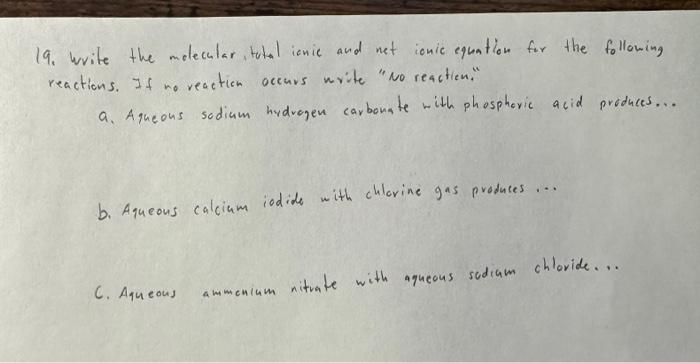 19. Write the molecular, total ionic and net ionic equation for the following
reactions. If no reaction occurs write "No reaction."
a. Aqueous sodium hydrogen carbonate with phosphoric acid produces...
b. Aqueous calcium iodide with chlorine gas produces ...
C. Aqueous ammonium nitrate with aqueous sodium chloride...